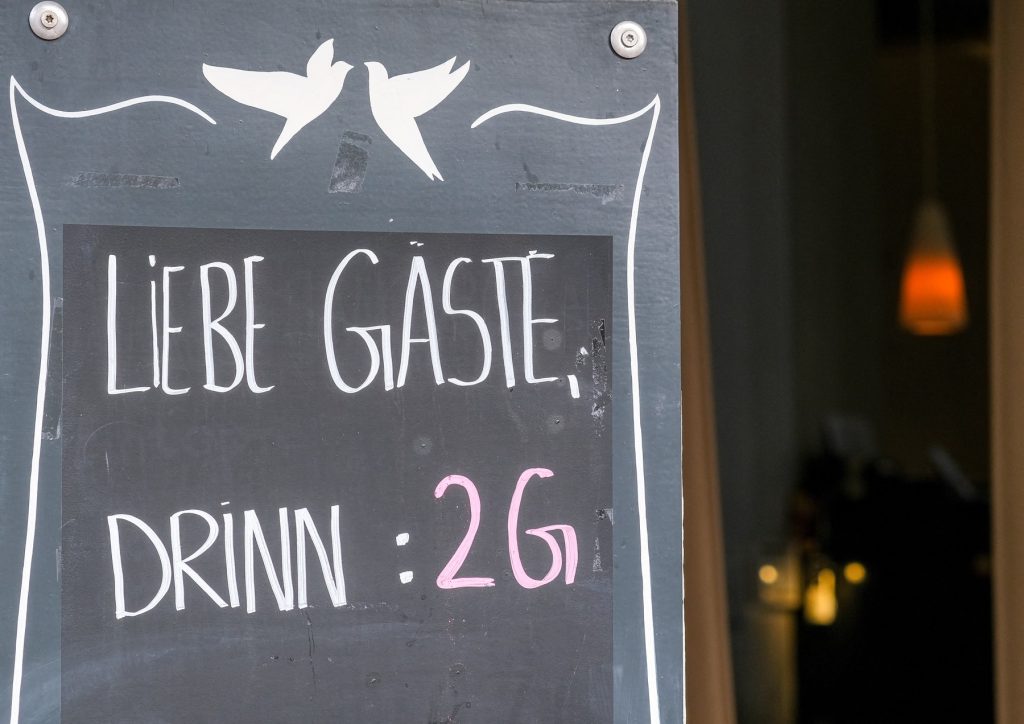 LIEBE GÄSTE,
DRINN : 2G